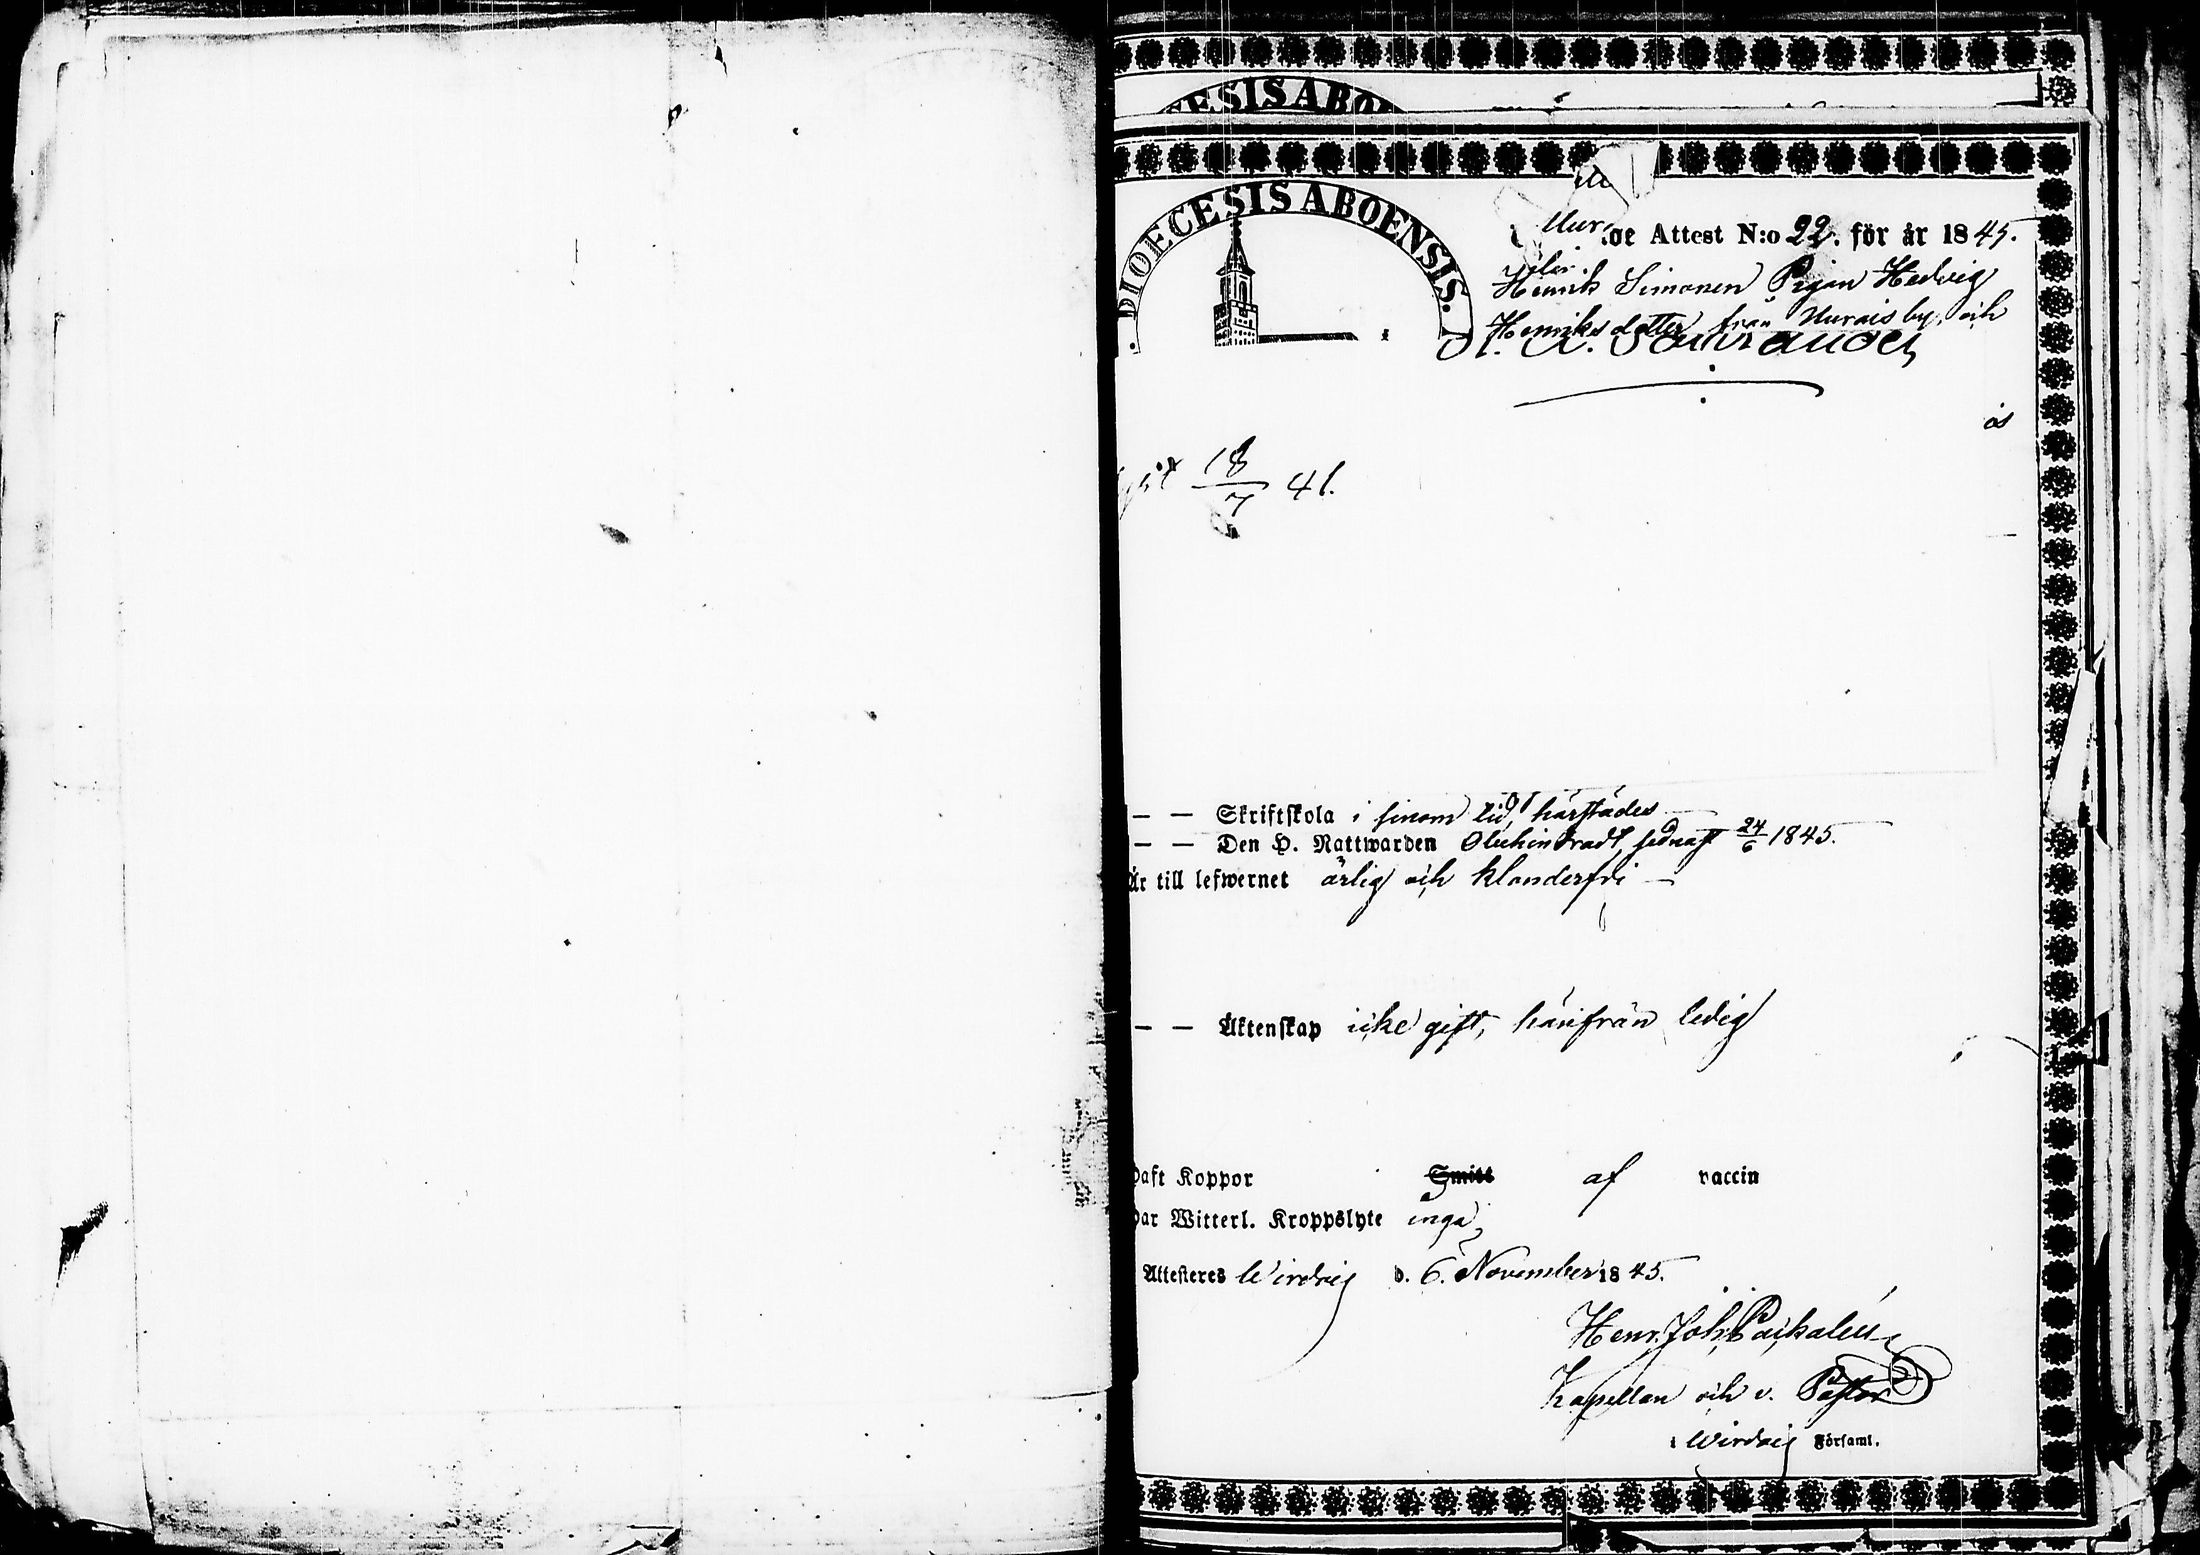 ESIS ABO
DIOECESIS ABOENSIS.
Attest N:o 22. för år 1845.
Henrik Simonen Pigan Hedvig
Henriksdotter från Nurais by, och
18/7 41.
— — Skriftskola i sinom tid, härstädes —
— — Den H. Nattwarden Oluhindradt, sednast 24/6 1845.
Är till lefwernet ärlig och klanderfri —
— — Äktenskap icke gift, härifrån ledig
haft Koppor Smitt af vaccin
har Witterl. Kroppslyte inga,
Attesteres Wirdois d. 6. November 1845.
Henr. Joh. Paskalein
Kapellan och v. Pastor
i Wirdois Församl.